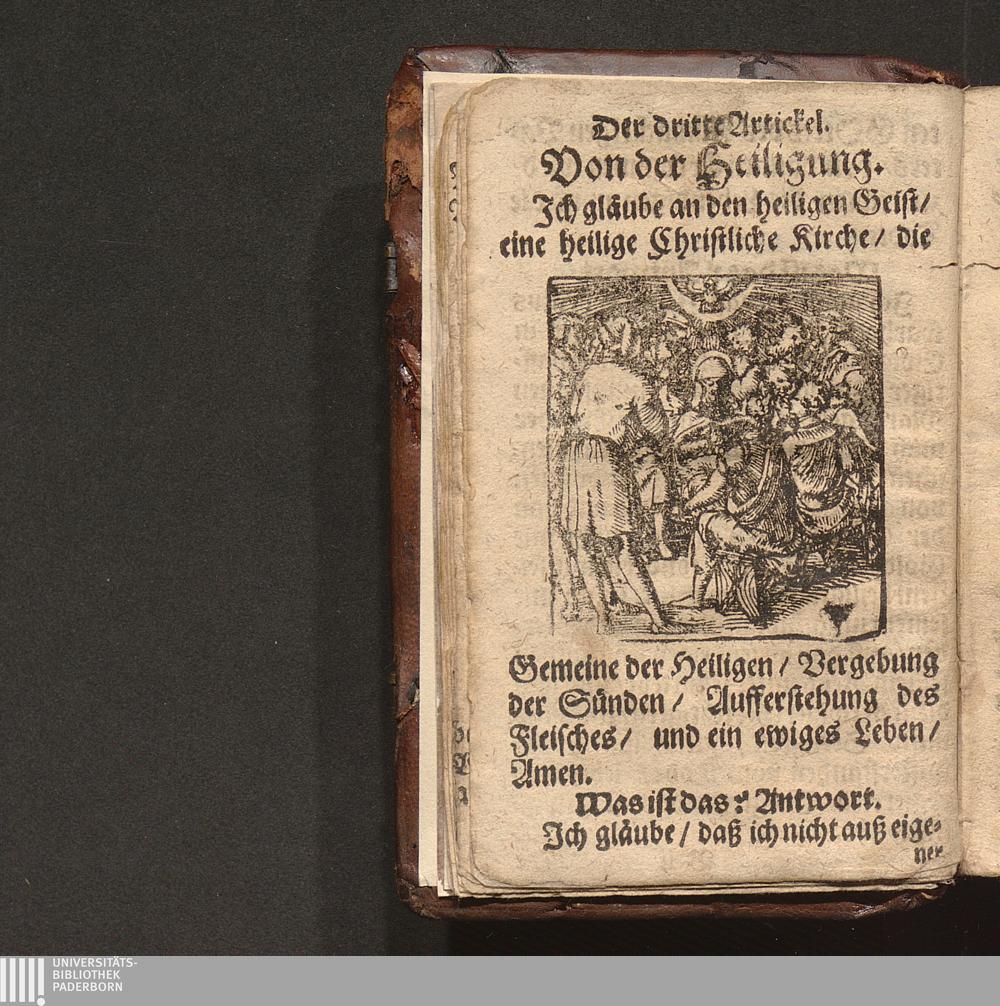 Der dritte Artickel.
Von der Heiligung.
Ich gläube an den heiligen Geist/
eine heilige Christliche Kirche/ die
Gemeine der Heiligen/ Vergebung
der Sünden/ Aufferstehung des
Fleisches/ und ein ewiges Leben/
Amen.
Was ist das? Antwort.
Ich gläube/ daß ich nicht auß eige-
ner
UNIVERSITÄTS-
BIBLIOTHEK
PADERBORN